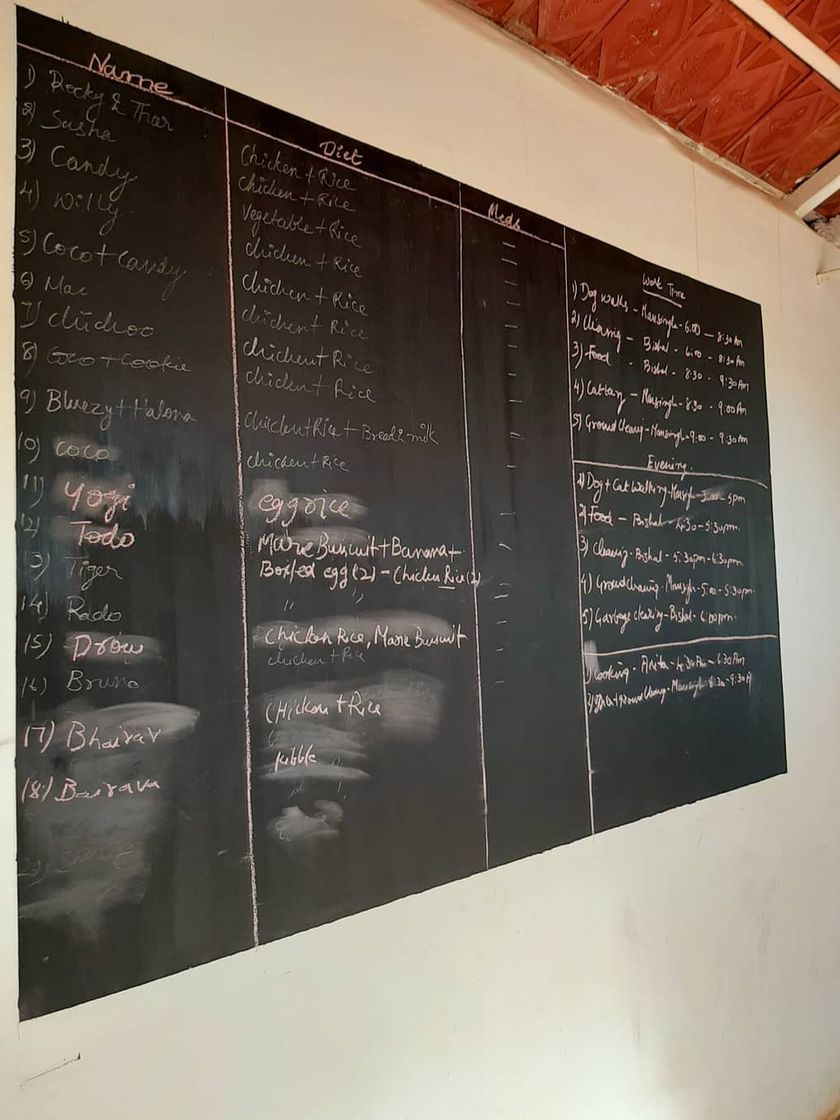 Name
1) Rocky & Thar
2) Sasha
3) Candy
4) Willy
5) Coco + Candy
6) Mac
7) Chuchoo
8) Coco + Cookie
9) Bluezy + Halona
10) Coco
11) Yogi
12) Todo
13) Tiger
14) Rado
15) Drow
16) Bruno
17) Bhairav
18) Bairava
20)
Diet
Chicken + Rice
Chicken + Rice
Vegetable + Rice
chicken + Rice
chicken + Rice
chicken + Rice
chicken + Rice
chicken + Rice
chicken + Rice + Bread & milk
chicken + Rice
egg rice
Marie Buscuit + Banana +
Boiled egg (2) - Chicken Rice (2)
" "
Chicken Rice, Marie Buscuit
chicken + Rice
CHicken + Rice
kibble
" "
Meds
Work Time
1) Dog walks - Mansingh - 6:00 - 8:30 Am
2) Cleaning - Bishal - 6:00 - 8:30 Am
3) Food - Bishal - 8:30 - 9:30 Am
4) Cattary - Mansingh - 8:30 - 9:00 Am
5) Ground cleaning - Mansingh - 9:00 - 9:30 Am
Evening.
1) Dog + Cat Walking - Mansingh - 3:00 - 5pm
2) Food - Bishal - 4:30 - 5:30pm.
3) Cleaning - Bishal - 5:30pm - 6:30pm.
4) Ground cleaning - Mansingh - 5:00 - 5:30pm.
5) Garbage clearing - Bishal - 6:00pm.
1) Cooking - Anita - 4:30 Am - 6:30 Am
2) ground cleaning - Mansingh - 8:30 - 9:30 A